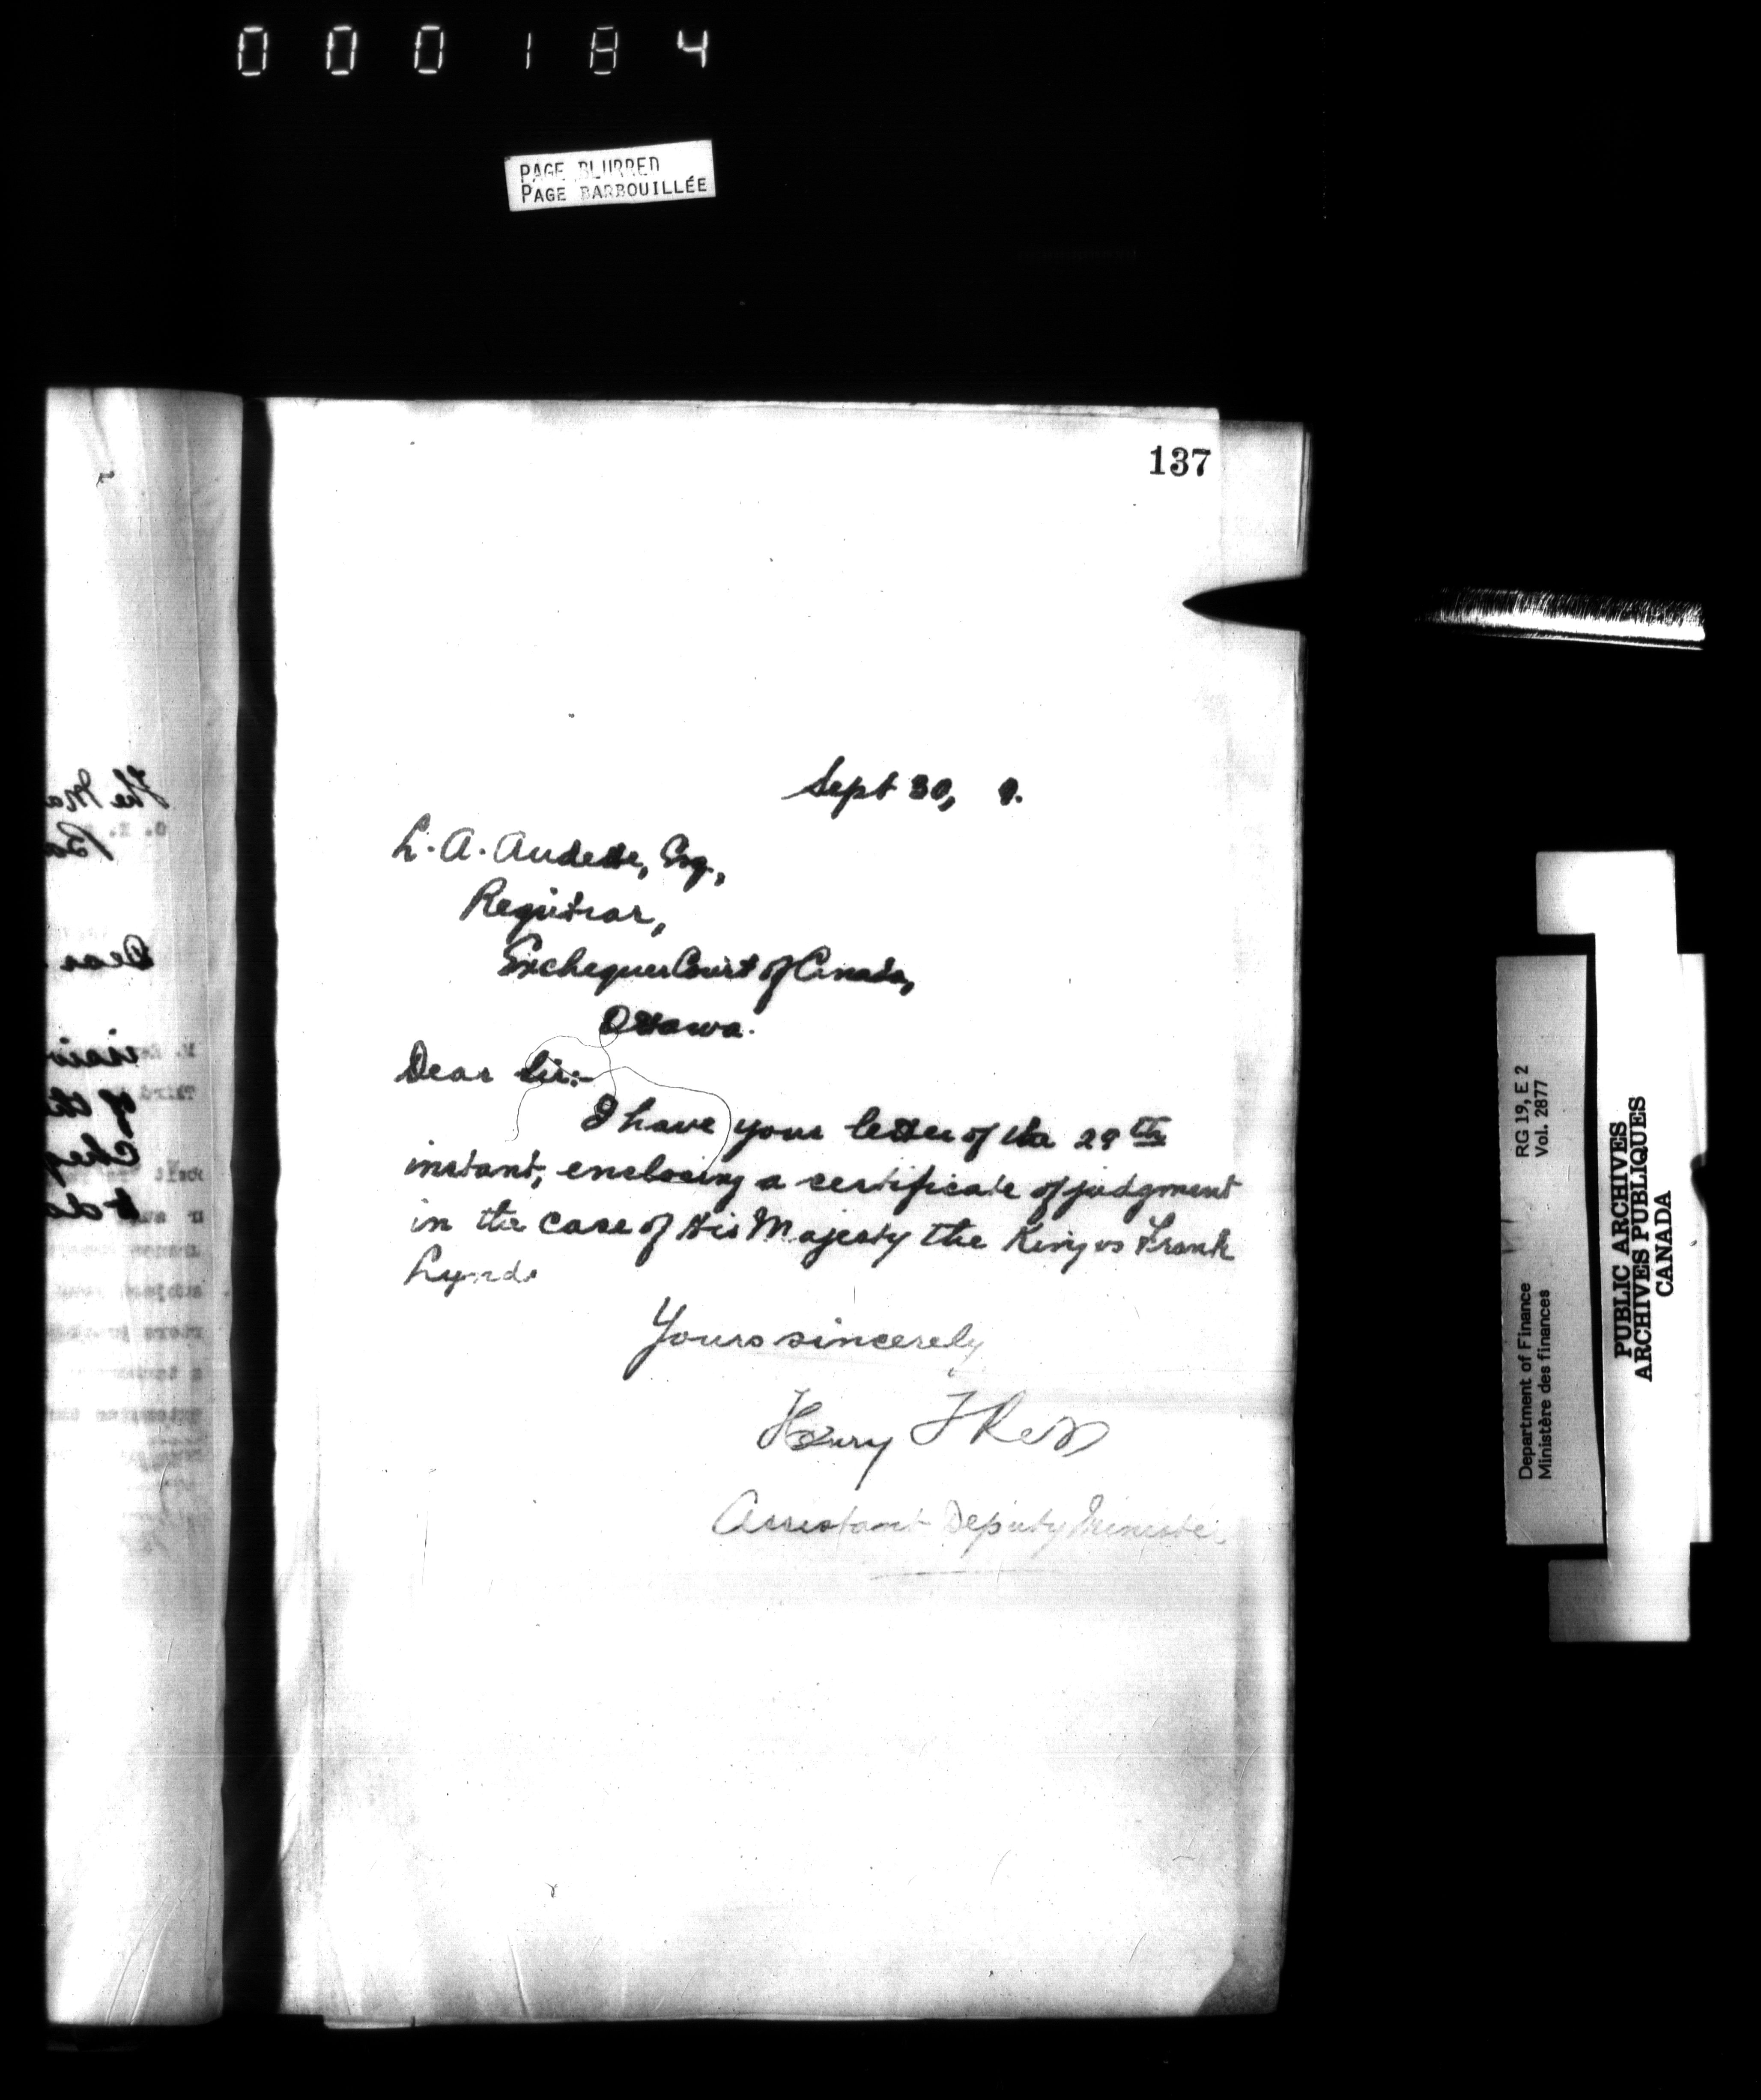 000184
PAGE BLURRED
PAGE BARBOUILLÉE
137
Sept 30, 9.
L. A. Audette, Esq.,
Registrar,
Exchequer Court of Canada,
Ottawa.
Dear Sir:-
I have your letter of the 29th
instant, enclosing a certificate of judgment
in the case of His Majesty the King vs Frank
Lynds
Yours sincerely
Henry T Ross
Assistant Deputy Minister
The Ma
Dear
Third
subject
RG 19, E 2
Vol. 2877
Department of Finance
Ministère des finances
PUBLIC ARCHIVES
ARCHIVES PUBLIQUES
CANADA